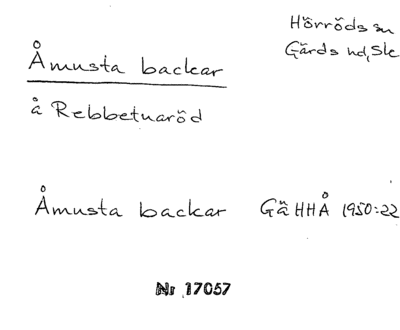 Hörröds sn
Gärds hd, Sk
Åmusta backar
å Rebbetuaröd
Åmusta backar GäHHÅ 1950:22
Nr 17057